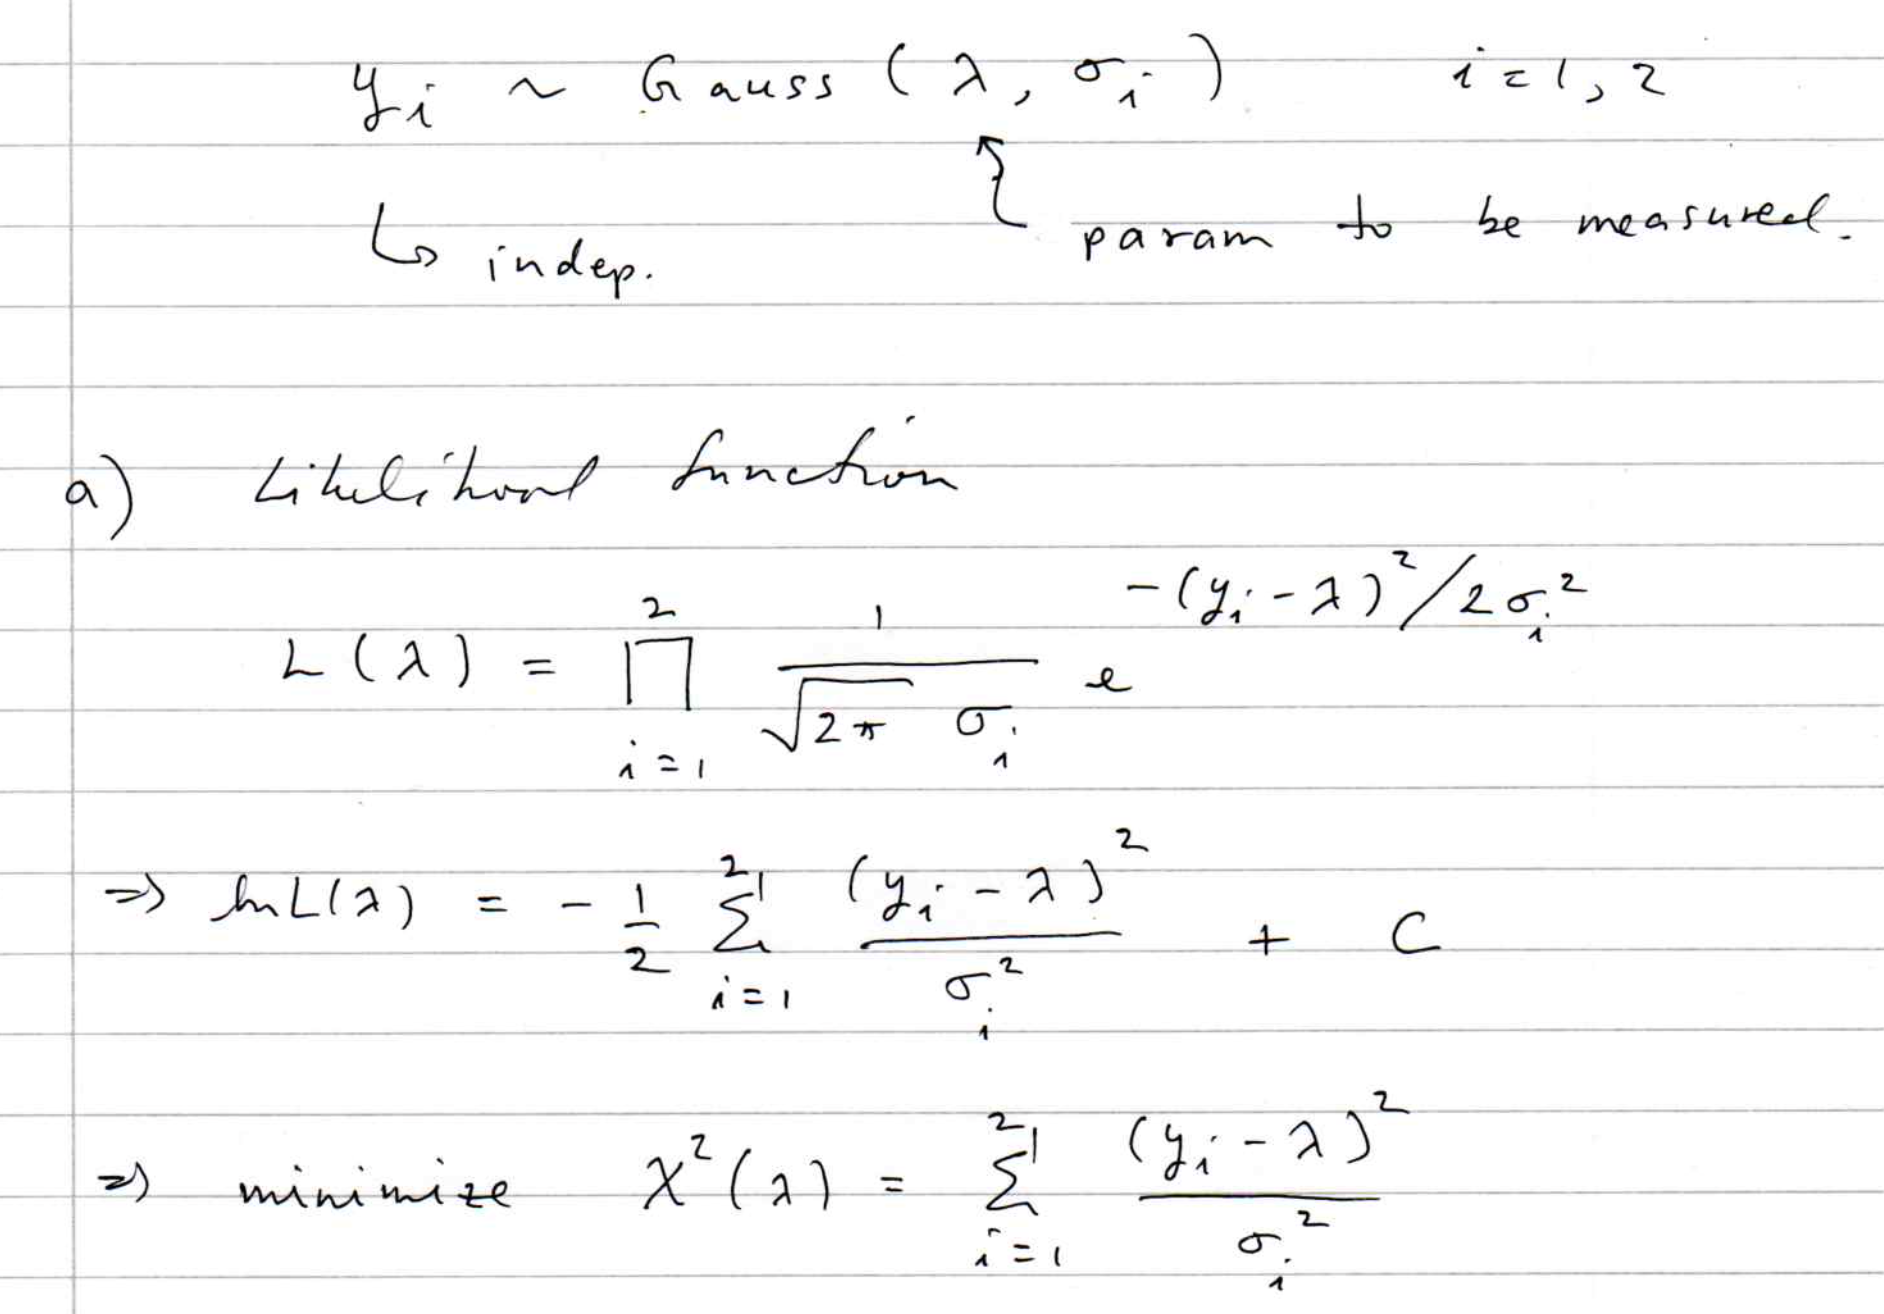 yᵢ ~ Gauss (λ, σᵢ)    i = 1, 2
↳ indep.    param to be measured.
a) Likelihood function
L(λ) = ∏_{i=1}^{2} 1/(√(2π) σᵢ) e^{-(yᵢ - λ)²/2σᵢ²}
⇒ ln L(λ) = - 1/2 ∑_{i=1}^{2} (yᵢ - λ)²/σᵢ² + C
⇒ minimize χ²(λ) = ∑_{i=1}^{2} (yᵢ - λ)²/σᵢ²